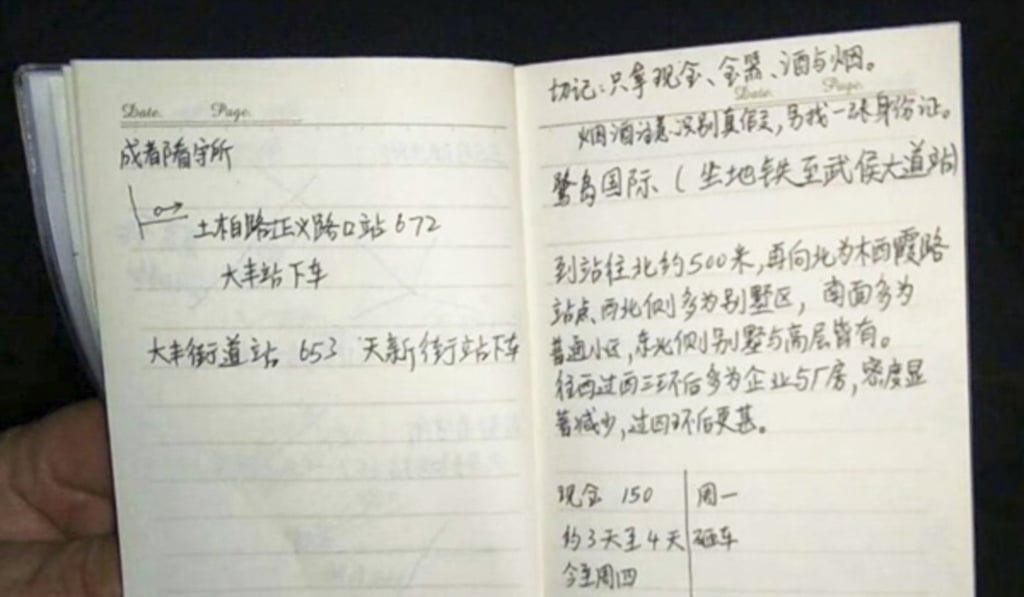 Date. Page.
成都看守所
土柏路正义路口站 672
大丰站下车
大丰街道站 653 天新街站下车
切记:只拿现金、金器、酒与烟。
Date. Page.
烟酒注意识别真假,另找一张身份证。
鹭岛国际、(坐地铁至武侯大道站)
到站往北约500米,再向北为木西霞路
站点、西北侧多为别墅区, 南面多为
普通小区,东北侧别墅与高层皆有。
往西过西三环后多为企业与厂房,密度显
著减少,过四环后更甚。
现金 150 周一
约3天至4天 砸车
今至周四